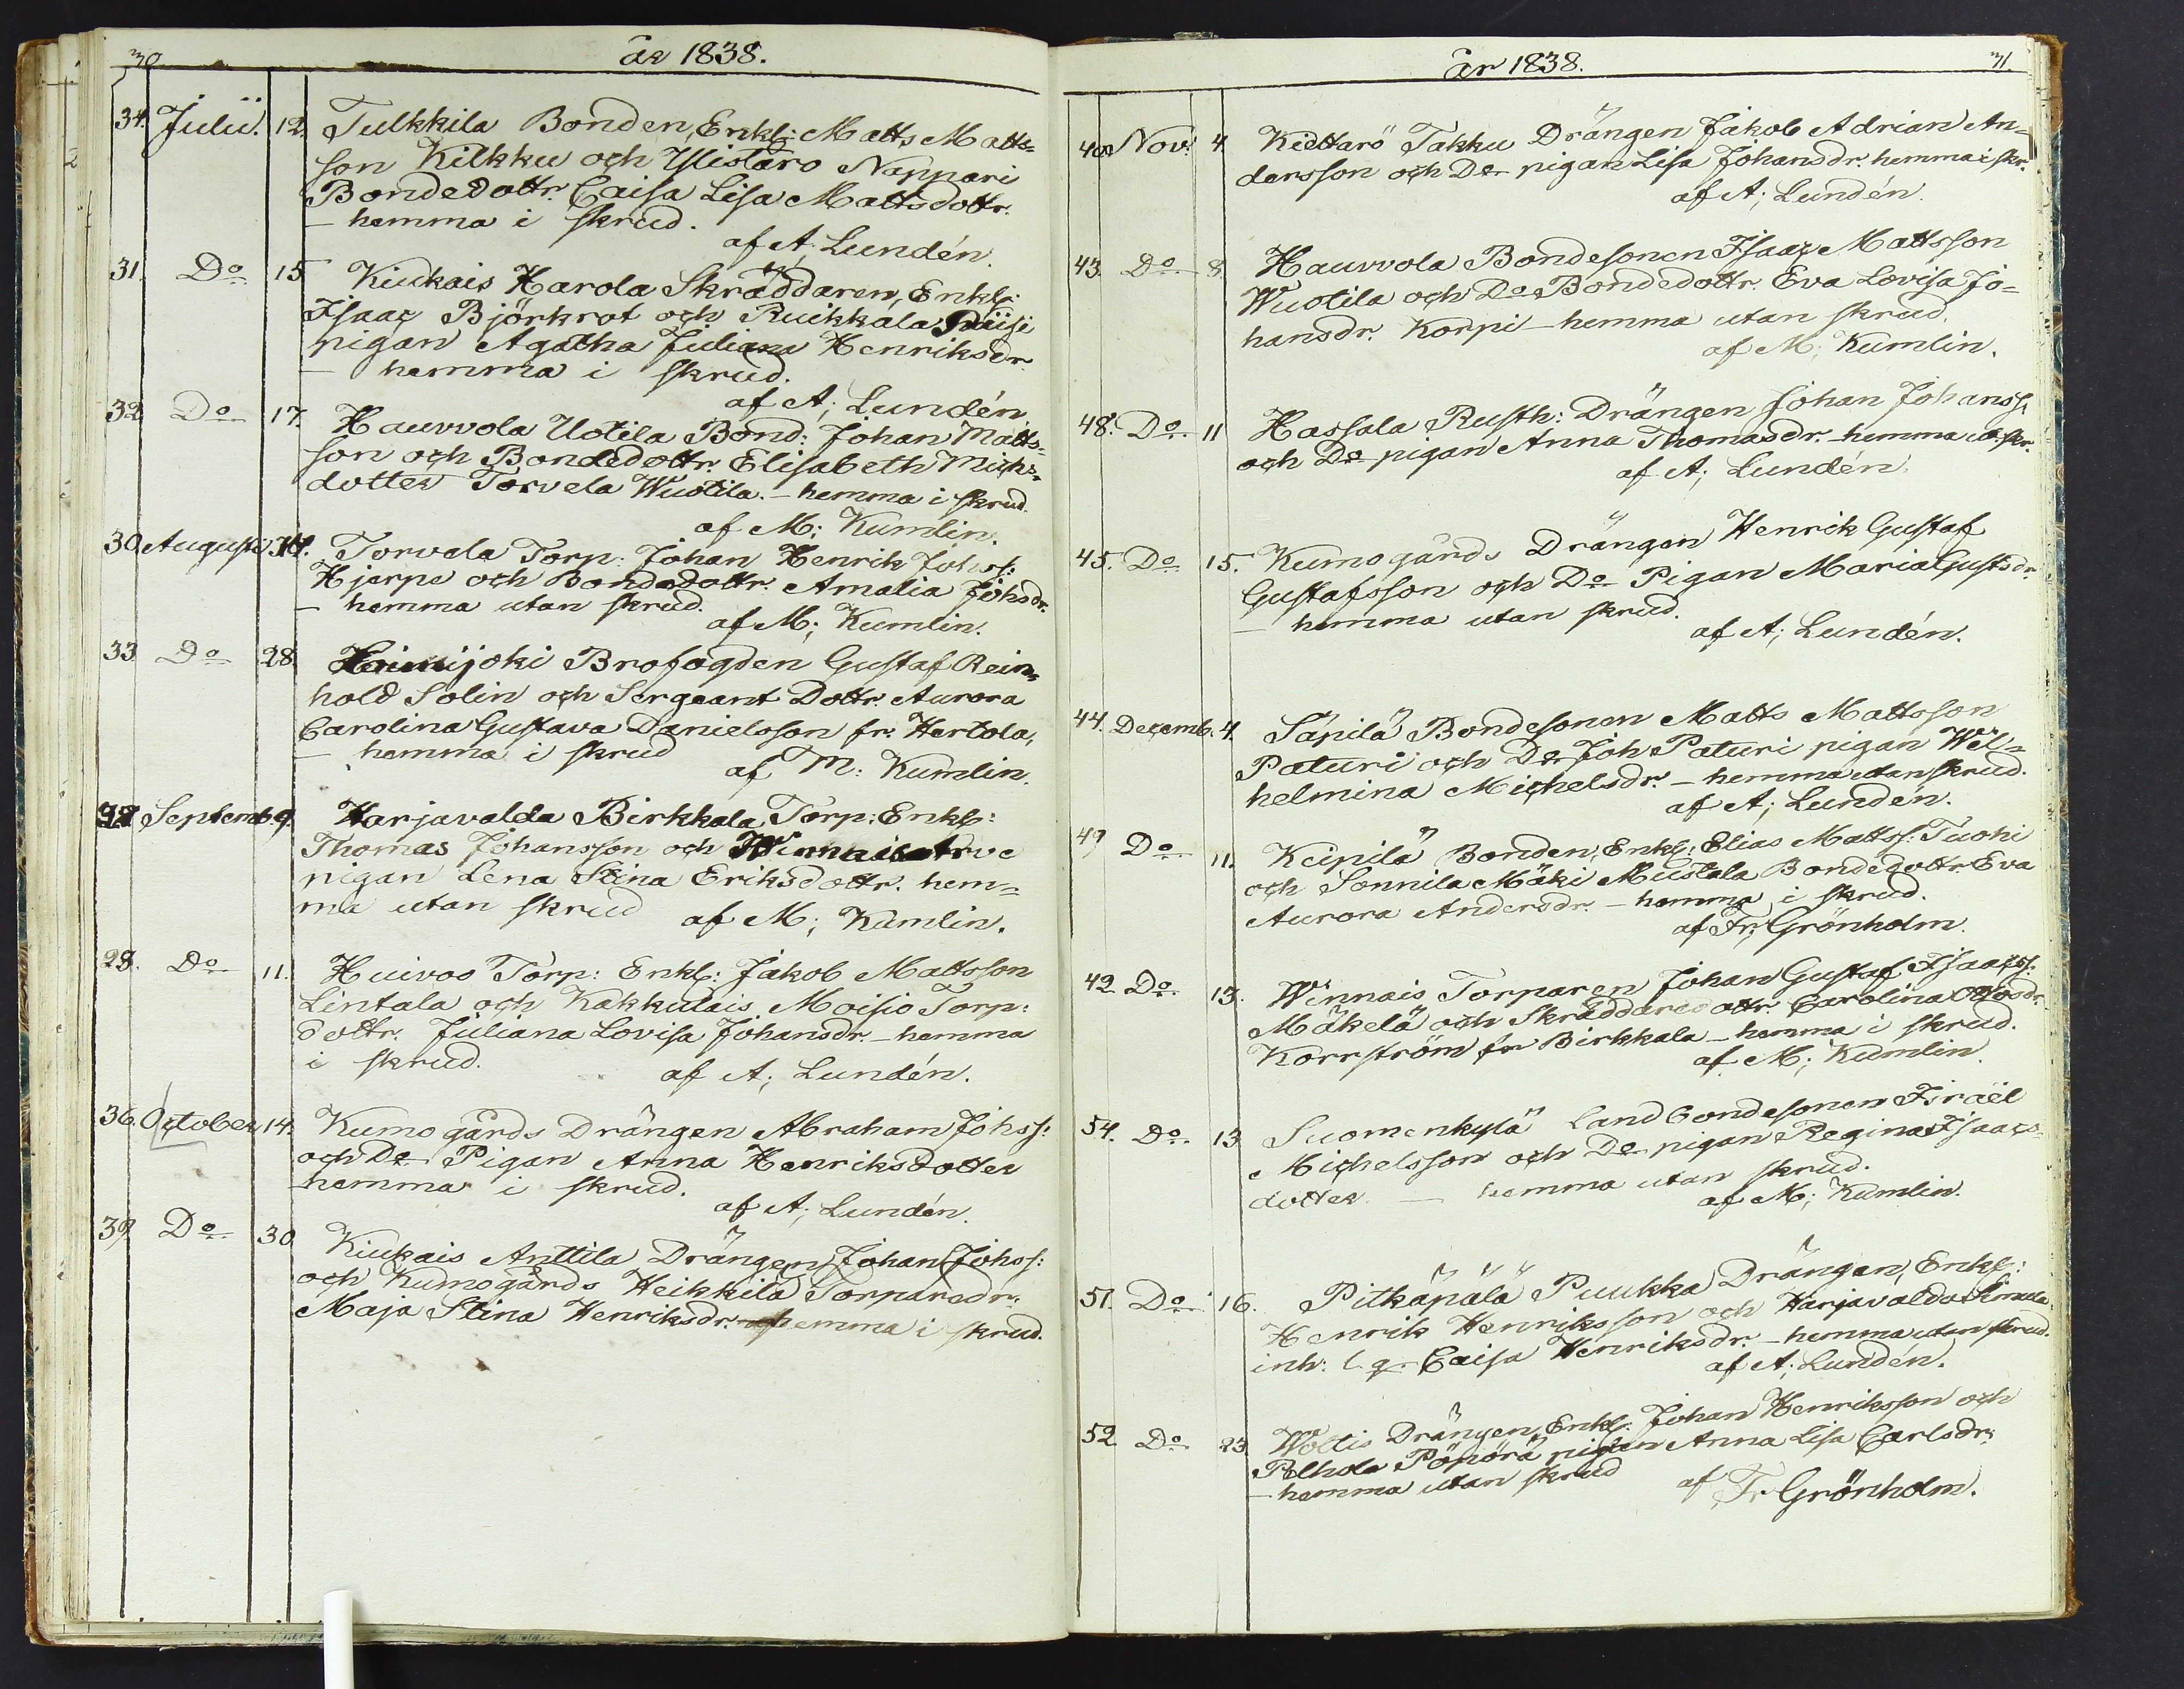 30.
år 1838.
34. Julii. 12. Tulkkila Bonden, Enkl: Matts Matts=
son Kilkku och Ylistaro Nappari
Bondedottr. Caisa Lisa Mattsdottr.
– hemma i skrud.
af A; Lundén.
31. Do 15 Kiukais Harola Skräddaren, Enkl:
Isaac Björkrot och Ruckkala
pigan Agatha Juliana Henriksdr.
– hemma i skrud.
af A; Lundén
32 Do 17. Hauvvola Uotila Bond: Johan Matts=
son och Bondedottr. Elisabeth Michs=
dotter Torvela Wuotila. – hemma i skrud.
af M: Kumlin.
30 Augusti 14. Torvala Torp: Johan Henrik Johss:
Hjerpe och Bondedottr. Amalia Johsdr.
– hemma utan skrud.
af M; Kumlin.
33 Do 28. Hoinijoki Brofogden Gustaf Rein=
hold Solin och Sergeant Dottr. Aurora
Carolina Gustava Danielsson fr. Hertola,
– hemma i skrud
af M: Kumlin.
Septemb 9. Harjavalda Birkkala Torp: Enkl:
Thomas Johansson och
pigan Lena Stina Eriksdottr. hem=
ma utan skrud
af M; Kumlin.
28. Do 11. Huivoo Torp: Enkl: Jakob Mattsson
Lintala och Kakkulais Moisio Torp:
dottr. Juliana Lovisa Johansdr. – hemma
i skrud.
af A; Lundén.
36. October 14. Kumogårds Drängen Abraham Johss:
och Do Pigan Anna Henriksdotter
hemma i skrud.
af A; Lundén.
39 Do 30. Kiukais Anttila Drängen Johan Johss:
och Kumogårds Heikkilä Torparedr.
Maja Stina Henriksdr. hemma i skrud.
år 1838.
31.
40 Nov: 4. Kiettarö Takku Drängen Jakob Adrian An=
dersson och Do pigan Lisa Johansdr. hemma i skr.
af A; Lundén.
43. Do 8. Hauvvola Bondesonen Isaac Mattsson
Wuotila och Do Bondedottr. Eva Lovisa Jo=
hansdr. Korpi – hemma utan skrud.
af M; Kumlin.
48. Do. 11 Hassala Rusth: Drängen Johan Johanss:
och Do pigan Anna Thomasdr. – hemma u. skr.
af A; Lundén
45. Do 15. Kumogårds Drängen Henrik Gustaf
Gustafsson och Do Pigan Maria Gustsdr.
– hemma utan skrud.
af A; Lundén.
44. Decemb. 4. Säpilä Bondesonen Matts Mattsson
Paturi och Do Joh Paturi pigan Wil=
helmina Michelsdr. – hemma utan skrud.
af A; Lundén.
49 Do 11. Keipilä Bonden, Enkl: Elias Mattss: Tuohi
och Sonnila Mäki Mustala Bondedottr Eva
Aurora Andersdr. – hemma i skrud.
af Fr; Grönholm.
42 Do. 13. Winnais Torparen Johan Gustaf Isaacss:
Mäkelä och Skräddaredottr. Carolina
Korrström fr Birkkala – hemma i skrud.
af M; Kumlin.
54. Do. 13 Suomenkylä Landbondesonen Israël
Michelsson och Do pigan Regina Isaacs=
dotter. – hemma utan skrud.
af M; Kumlin.
51. Do 16. Pitkäpälä Puukka Drängen, Enkl:
Henrik Henriksson och Harjavalda
inh: l. q. Caisa Henriksdr. – hemma utan skrud.
af A; Lundén.
52 Do 23. Woltis Drängen, Enkl: Johan Henriksson och
Pöpörä pigan Anna Lisa Carlsdr:
– hemma utan skrud
af Fr Grönholm.